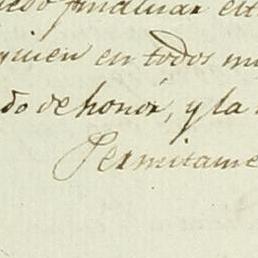 finalizar
quien en todos
do de honor, y la
Permitame